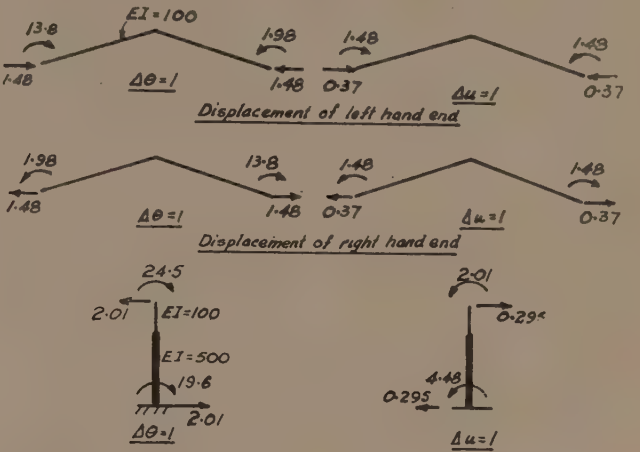 EI=100
13.8 1.98 1.48 1.48
1.48 1.48 0.37 0.37
Δθ=1 Δu=1
Displacement of left hand end
1.98 13.8 1.48 1.48
1.48 1.48 0.37 0.37
Δθ=1 Δu=1
Displacement of right hand end
24.5 2.01
2.01 EI=100
EI=500
19.6 4.48
0.295
2.01
Δθ=1 Δu=1